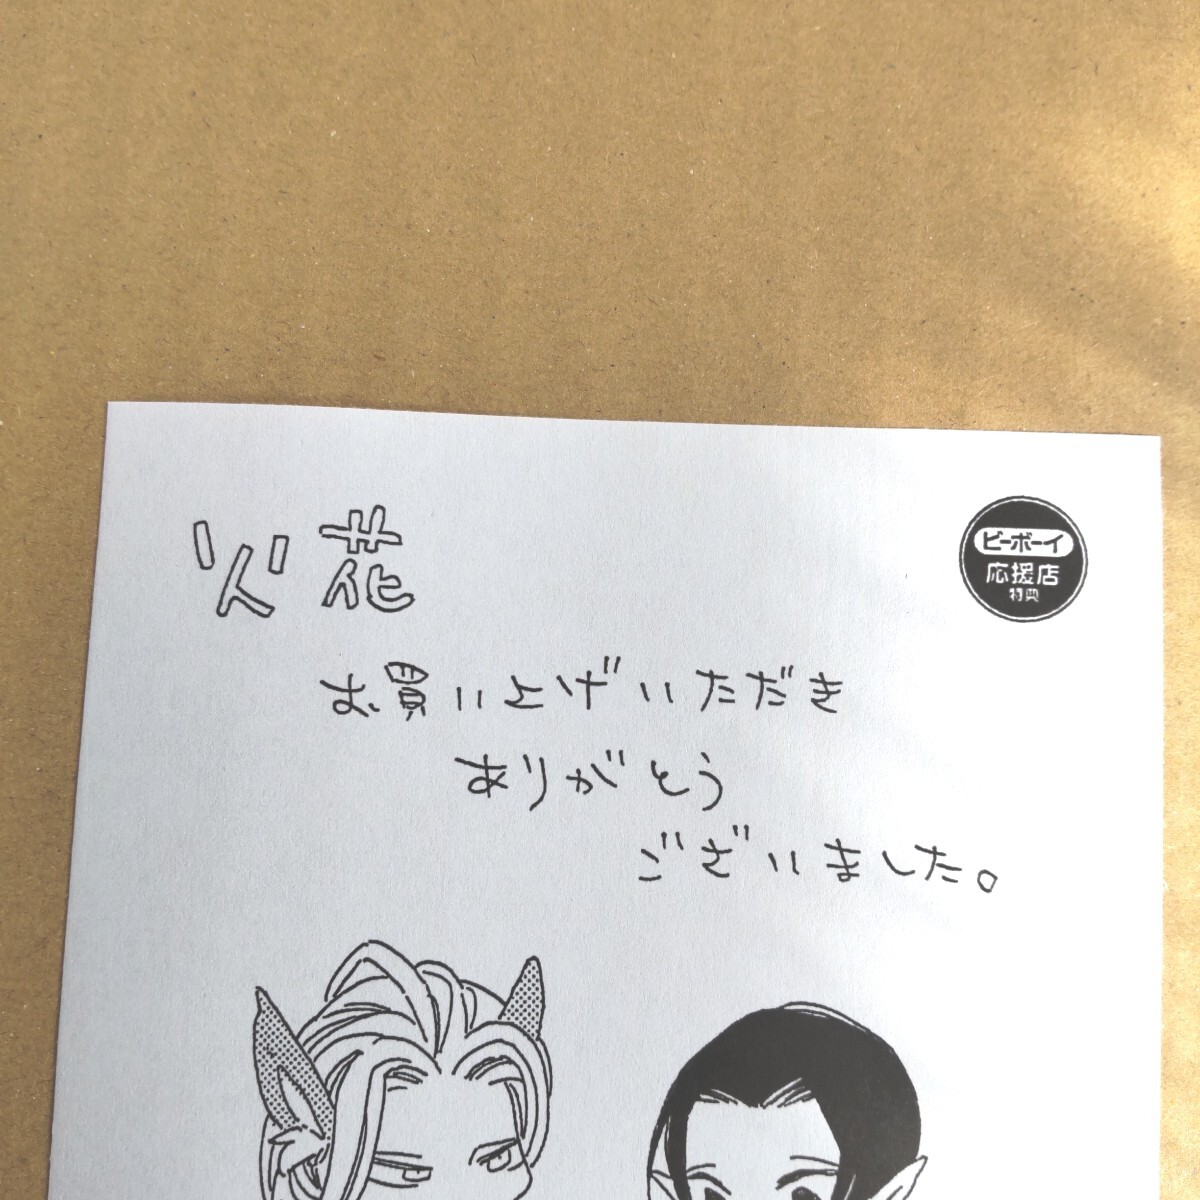 火花
ビーボーイ
応援店
特典
お買い上げいただき
ありがとう
ございました。